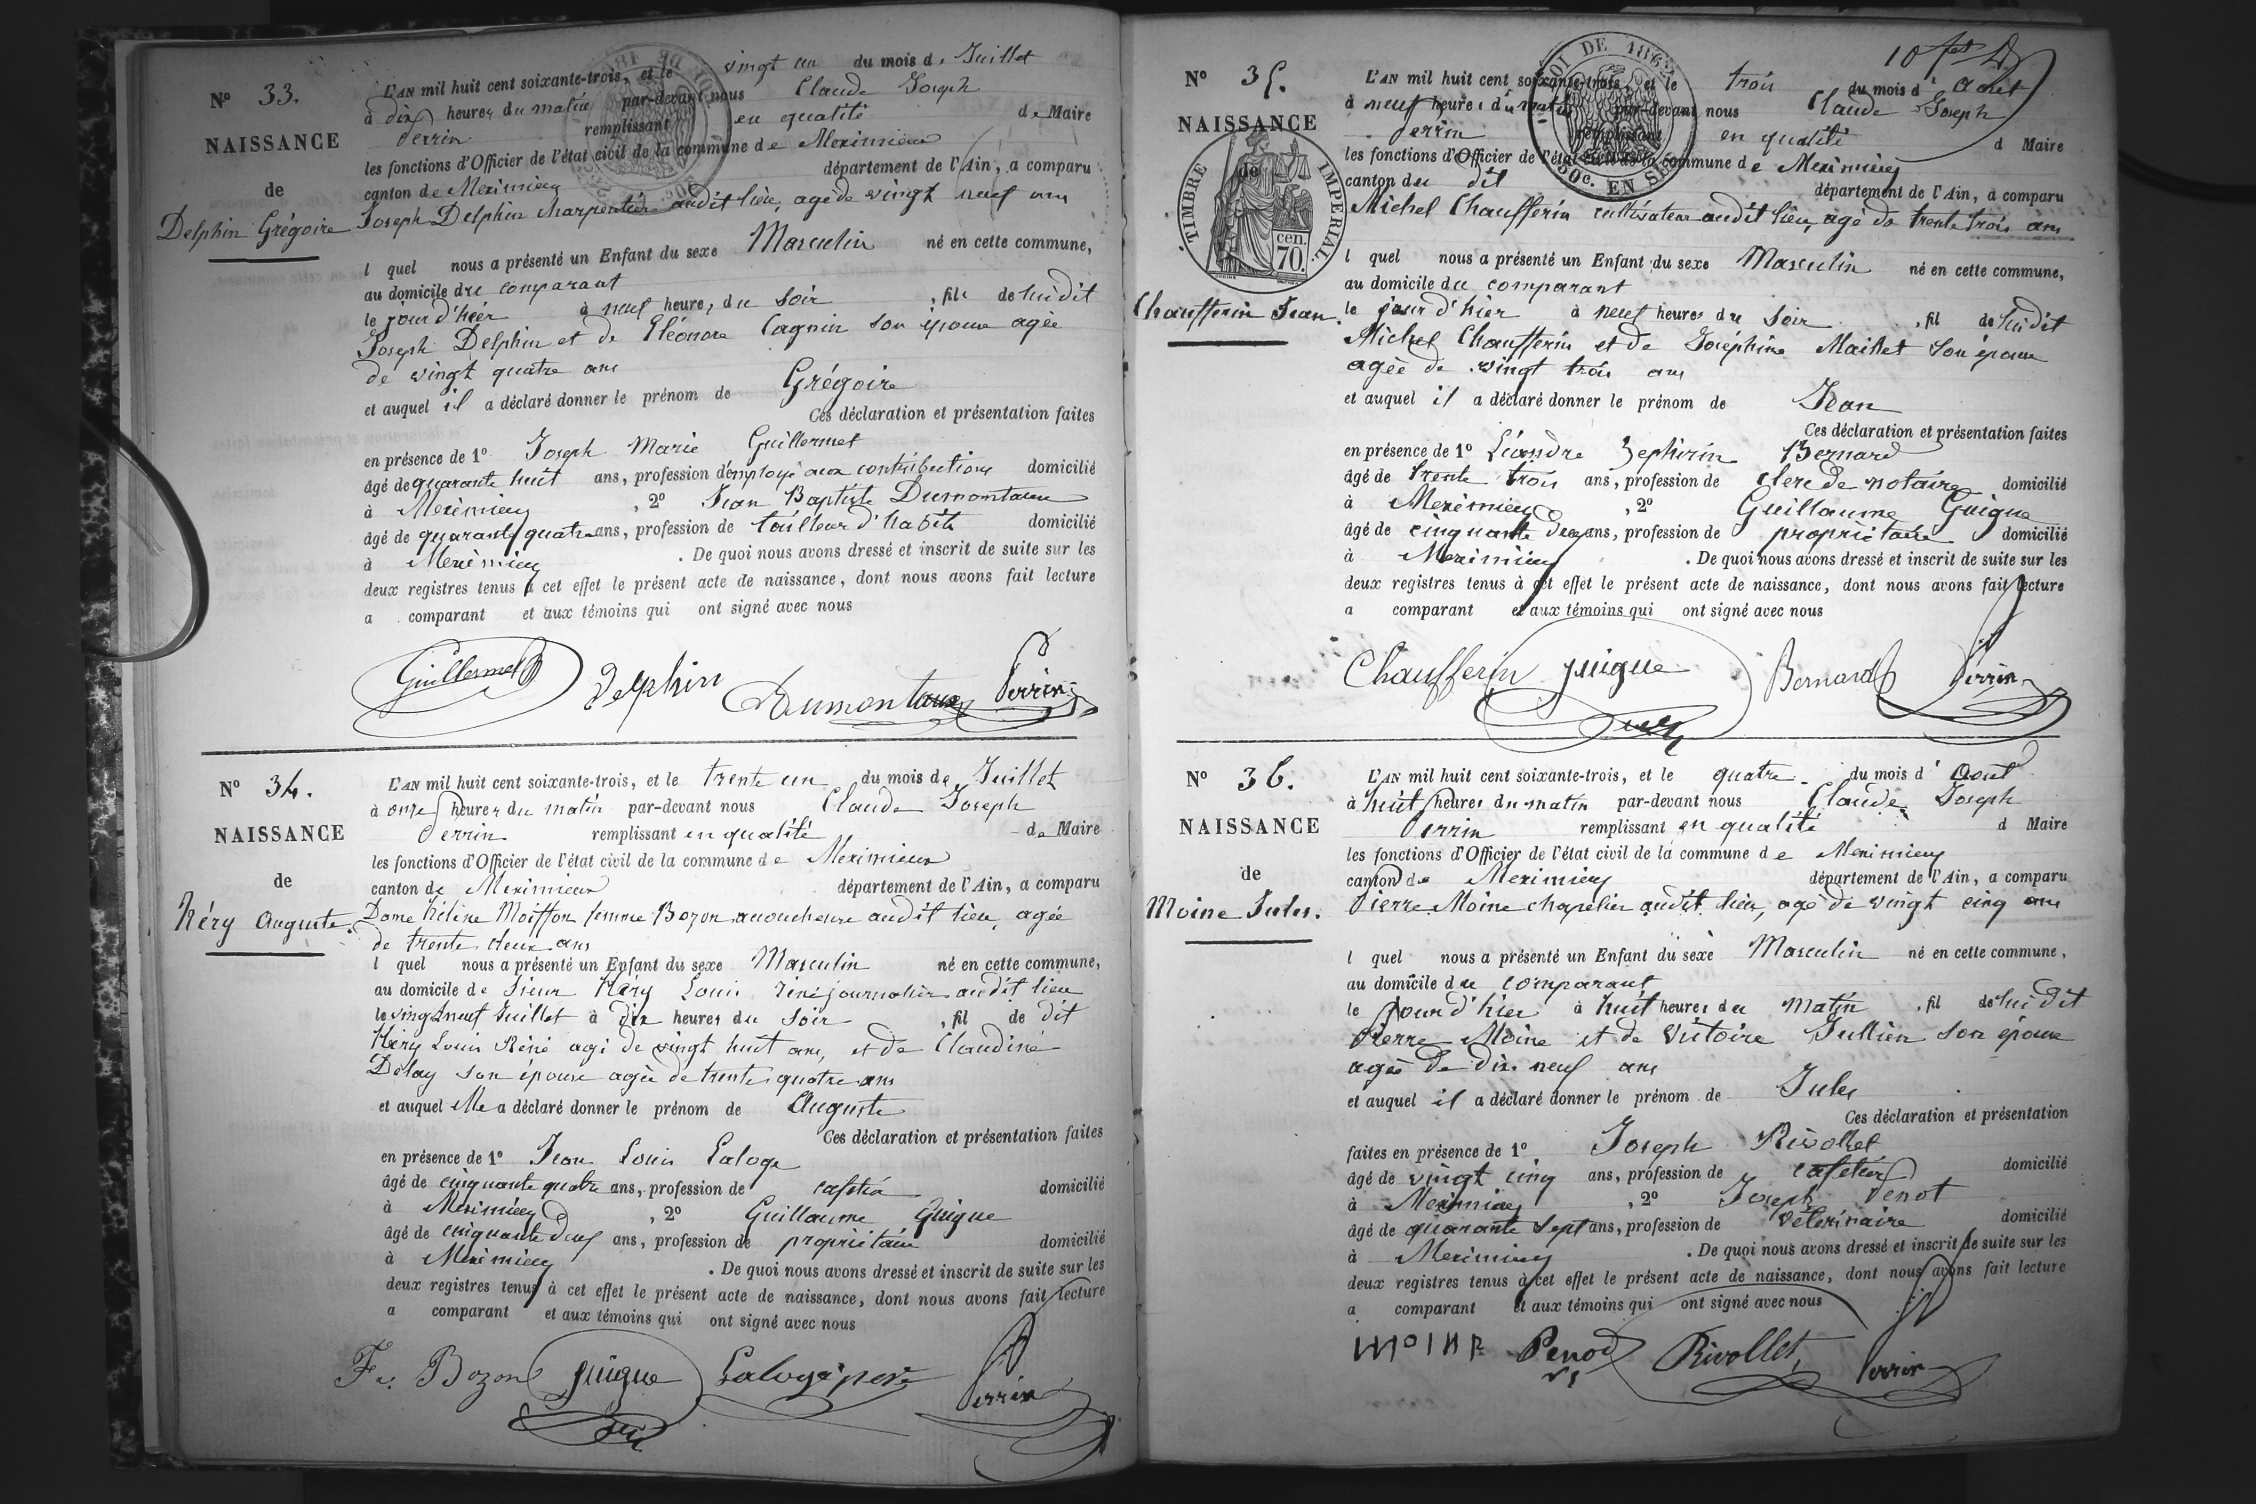 N° 33.
NAISSANCE
de
Delphin Grégoire
L'AN mil huit cent soixante-trois, et le vingt un du mois de Juillet
à dix heures du matin par-devant nous Claude Joseph
Perrin remplissant en qualité de Maire
les fonctions d'Officier de l'état civil de la commune de Meximieux
canton de Meximieux département de l'Ain, a comparu
Joseph Delphin charpentier audit lieu, agé de vingt neuf ans
l quel nous a présenté un Enfant du sexe Masculin né en cette commune,
au domicile du comparant
le jour d'hier à neuf heures du Soir, fils de lui dit
Joseph Delphin et de Eléonore Cagnin son épouse agée
de vingt quatre ans
et auquel il a déclaré donner le prénom de Grégoire
Ces déclaration et présentation faites
en présence de 1° Joseph Marie Guillermet
âgé de quarante huit ans, profession d'employé aux contributions domicilié
à Meximieux, 2° Jean Baptiste Dumontaux
âgé de quarante quatre ans, profession de tailleur d'habits domicilié
à Meximieux. De quoi nous avons dressé et inscrit de suite sur les
deux registres tenus à cet effet le présent acte de naissance, dont nous avons fait lecture
a comparant et aux témoins qui ont signé avec nous
Guillermet Delphin Dumontaux Perrin
N° 34.
NAISSANCE
de
Néry Auguste.
L'AN mil huit cent soixante-trois, et le trente un du mois de Juillet
à onze heures du matin par-devant nous Claude Joseph
Perrin remplissant en qualité de Maire
les fonctions d'Officier de l'état civil de la commune de Meximieux
canton de Meximieux département de l'Ain, a comparu
Dame Hélène Moiffon femme Bozon accoucheuse audit lieu, agée
de trente deux ans
l quel nous a présenté un Enfant du sexe Masculin né en cette commune,
au domicile de Sieur Néry Louis René journalier audit lieu
le vingt neuf Juillet à dix heures du Soir, fil de dit
Néry Louis Réné agé de vingt huit ans, et de Claudine
Delay son épouse agée de trente quatre ans
et auquel Elle a déclaré donner le prénom de Auguste
Ces déclaration et présentation faites
en présence de 1° Jean Louis Laloge
âgé de cinquante quatre ans, profession de cafetier domicilié
à Meximieux, 2° Guillaume Guigue
âgé de cinquante deux ans, profession de propriétaire domicilié
à Meximieux. De quoi nous avons dressé et inscrit de suite sur les
deux registres tenus à cet effet le présent acte de naissance, dont nous avons fait lecture
a comparant et aux témoins qui ont signé avec nous
Fe. Bozon guigue Laloge père Perrin
LOI DE 1862
50c. EN SUS
N° 35.
NAISSANCE
de
TIMBRE IMPERIAL
cen. 70.
Chaufferin Jean.
L'AN mil huit cent soixante-trois, et le trois du mois d'Août
à neuf heures du matin par-devant nous Claude Joseph
Perrin remplissant en qualité d Maire
les fonctions d'Officier de l'état civil de la commune de Meximieux
canton du dit département de l'Ain, a comparu
Michel Chaufferin cultivateur audit lieu, agé de trente trois ans
l quel nous a présenté un Enfant du sexe Masculin né en cette commune,
au domicile du comparant
le jour d'hier à neuf heures du Soir, fil de lui dit
Michel Chaufferin et de Joséphine Maillet son épouse
agée de vingt trois ans
et auquel il a déclaré donner le prénom de Jean
Ces déclaration et présentation faites
en présence de 1° Léandre Zephirin Bernard
âgé de trente trois ans, profession de clerc de notaire domicilié
à Meximieux, 2° Guillaume Guigue
âgé de cinquante deux ans, profession de propriétaire domicilié
à Meximieux. De quoi nous avons dressé et inscrit de suite sur les
deux registres tenus à cet effet le présent acte de naissance, dont nous avons fait lecture
a comparant et aux témoins qui ont signé avec nous
Chaufferin guigue Bernard Perrin
N° 36.
NAISSANCE
de
Moine Jules.
L'AN mil huit cent soixante-trois, et le quatre du mois d'Août
à huit heures du matin par-devant nous Claude Joseph
Perrin remplissant en qualité d Maire
les fonctions d'Officier de l'état civil de la commune de Meximieux
canton de Meximieux département de l'Ain, a comparu
Pierre Moine chapelier audit lieu, agé de vingt cinq ans
l quel nous a présenté un Enfant du sexe Masculin né en cette commune,
au domicile du comparant
le jour d'hier à huit heures du matin, fil de lui dit
Pierre Moine et de Victoire Jullien son épouse
agée de dix neuf ans
et auquel il a déclaré donner le prénom de Jules
Ces déclaration et présentation
faites en présence de 1° Joseph Rivollet
âgé de vingt cinq ans, profession de cafetier domicilié
à Meximieux, 2° Joseph Penot
âgé de quarante sept ans, profession de vétérinaire domicilié
à Meximieux. De quoi nous avons dressé et inscrit de suite sur les
deux registres tenus à cet effet le présent acte de naissance, dont nous avons fait lecture
a comparant et aux témoins qui ont signé avec nous
moine Penot Rivollet Perrin